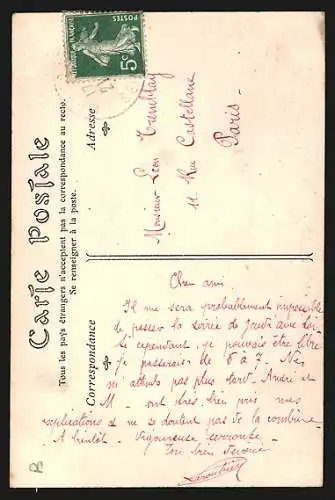 Carte Postale
Tous les pays étrangers n'acceptent pas la correspondance au recto.
Se renseigner à la poste.
Correspondance
Adresse
REPUBLIQUE FRANÇAISE
POSTES
5c
Monsieur Léon Tremblay
11 Rue Castellane
Paris
Cher ami
Il me sera probablement impossible
de passer la soirée de Jeudi avec toi
Si cependant je pouvais être libre
je passerais de 6 à 7. Ne
m'attends pas plus tard. André et
M. ont très bien pris mes
explications et ne se doutent pas de la combine.
A bientôt. Vigoureuse
Ton bien